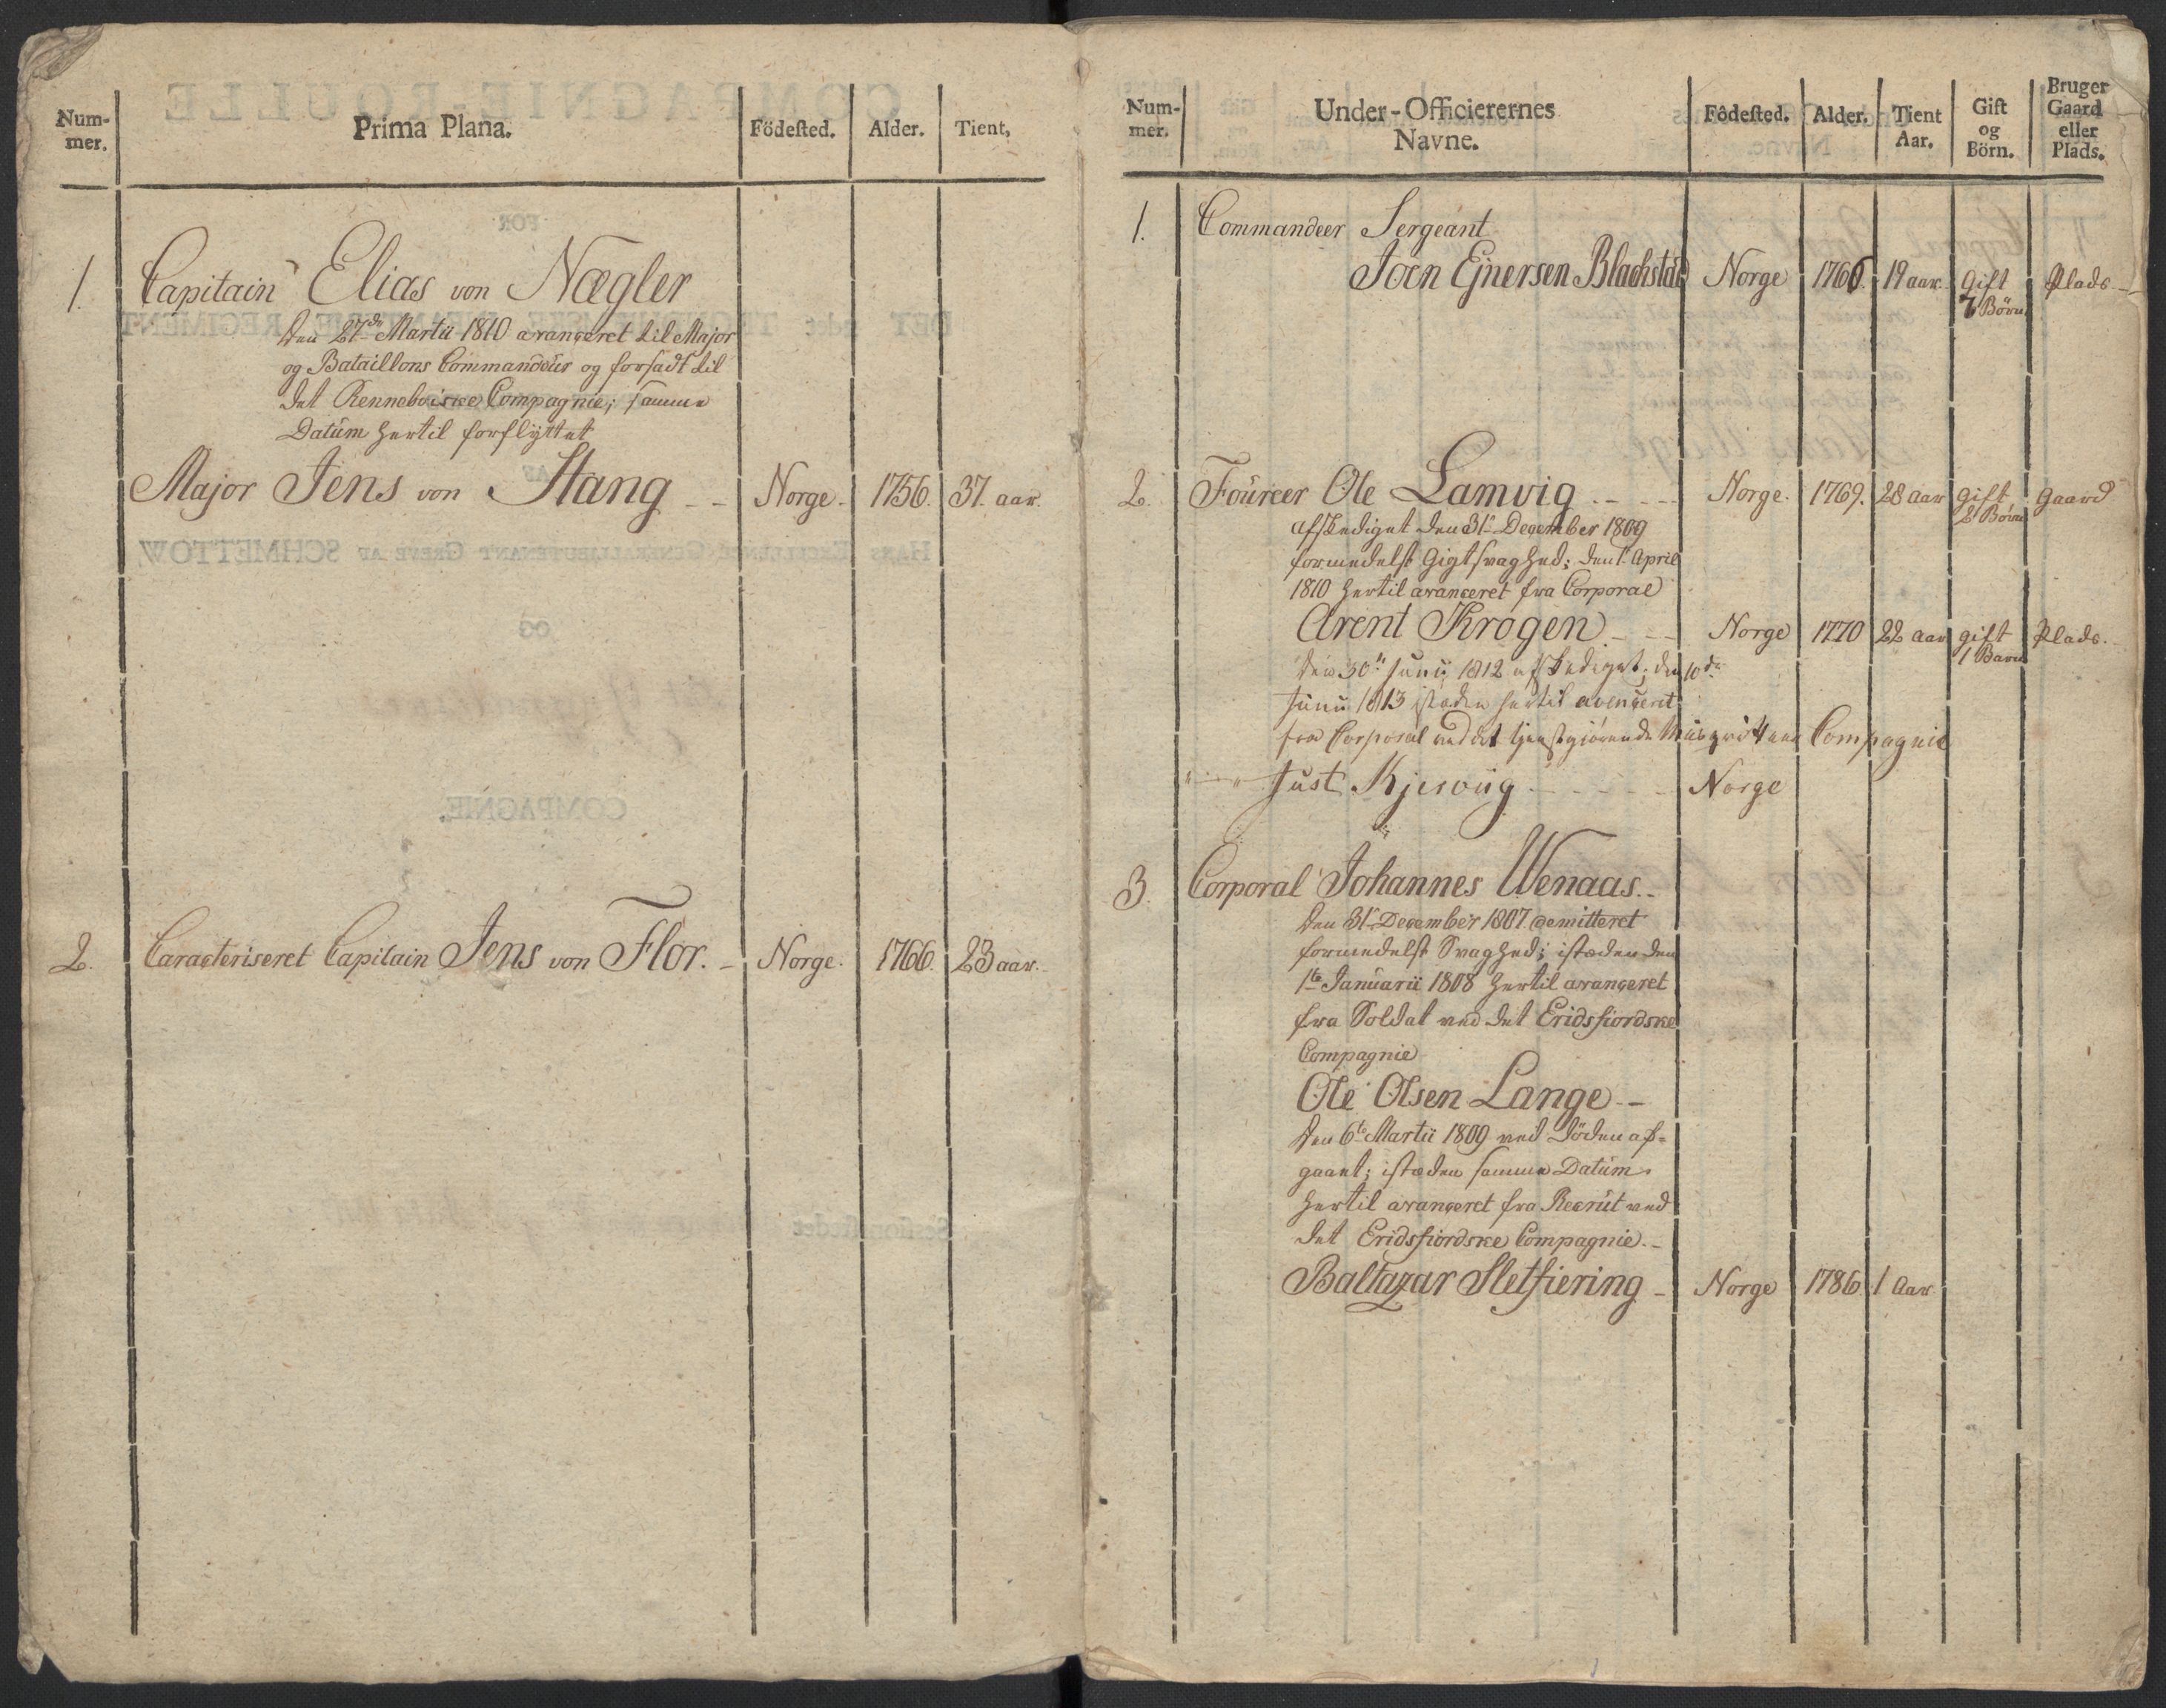 Num-
mer.
Prima Plana.
Födested.
Alder.
Tient,
1.
Capitain Elias von Nægler
Den 27de Martii 1810 avanceret til Major
og Bataillons Commandeur og forsadt til
det Rennebuiske Compagnie; samme
Datum hertil forflyttet
Major Jens von Stang - - Norge. 1756. 37. aar.
2. Caracteriseret Capitain Jens von Flor. - Norge. 1766. 23 aar.
Num-
mer.
Under-Officierernes
Navne.
Födested.
Alder.
Tient
Aar.
Gift
og
Börn.
Bruger
Gaard
eller
Plads.
1. Commandeer Sergeant
Joen Ejnersen Blachstad Norge 1766. 19 aar. Gift Plads
7 Börn
2. Foureer Ole Lamvig - - - Norge. 1769. 28 aar gift Gaard
2 Börn
afskediget den 31te December 1809
formedelst Gigtsvaghed; den 1te April
1810 hertil avanceret fra Corporal
Arent Krogen - - - Norge 1770 22 aar gift Plads.
1 Barn
den 30te Junii 1812 afskediget; den 10de
Junii 1813 istæden hertil avenceret
fra Corporal ved det tienstgjörende Compagnie
Just Kjesviig - - - - Norge
3. Corporal Johannes Wenaas. -
Den 31te December 1807 demitteret
formedelst Svaghed; istæden den
1te Januarii 1808 hertil avanceret
fra Soldat ved det Eridsfiordske
Compagnie
Ole Olsen Lange - -
Den 6te Martii 1809 ved Döden af-
gaaet; istæden samme Datum
hertil avanceret fra Recrut ved
det Eridsfiordske Compagnie. -
Baltazar Sletfiering - Norge 1786. 1 Aar